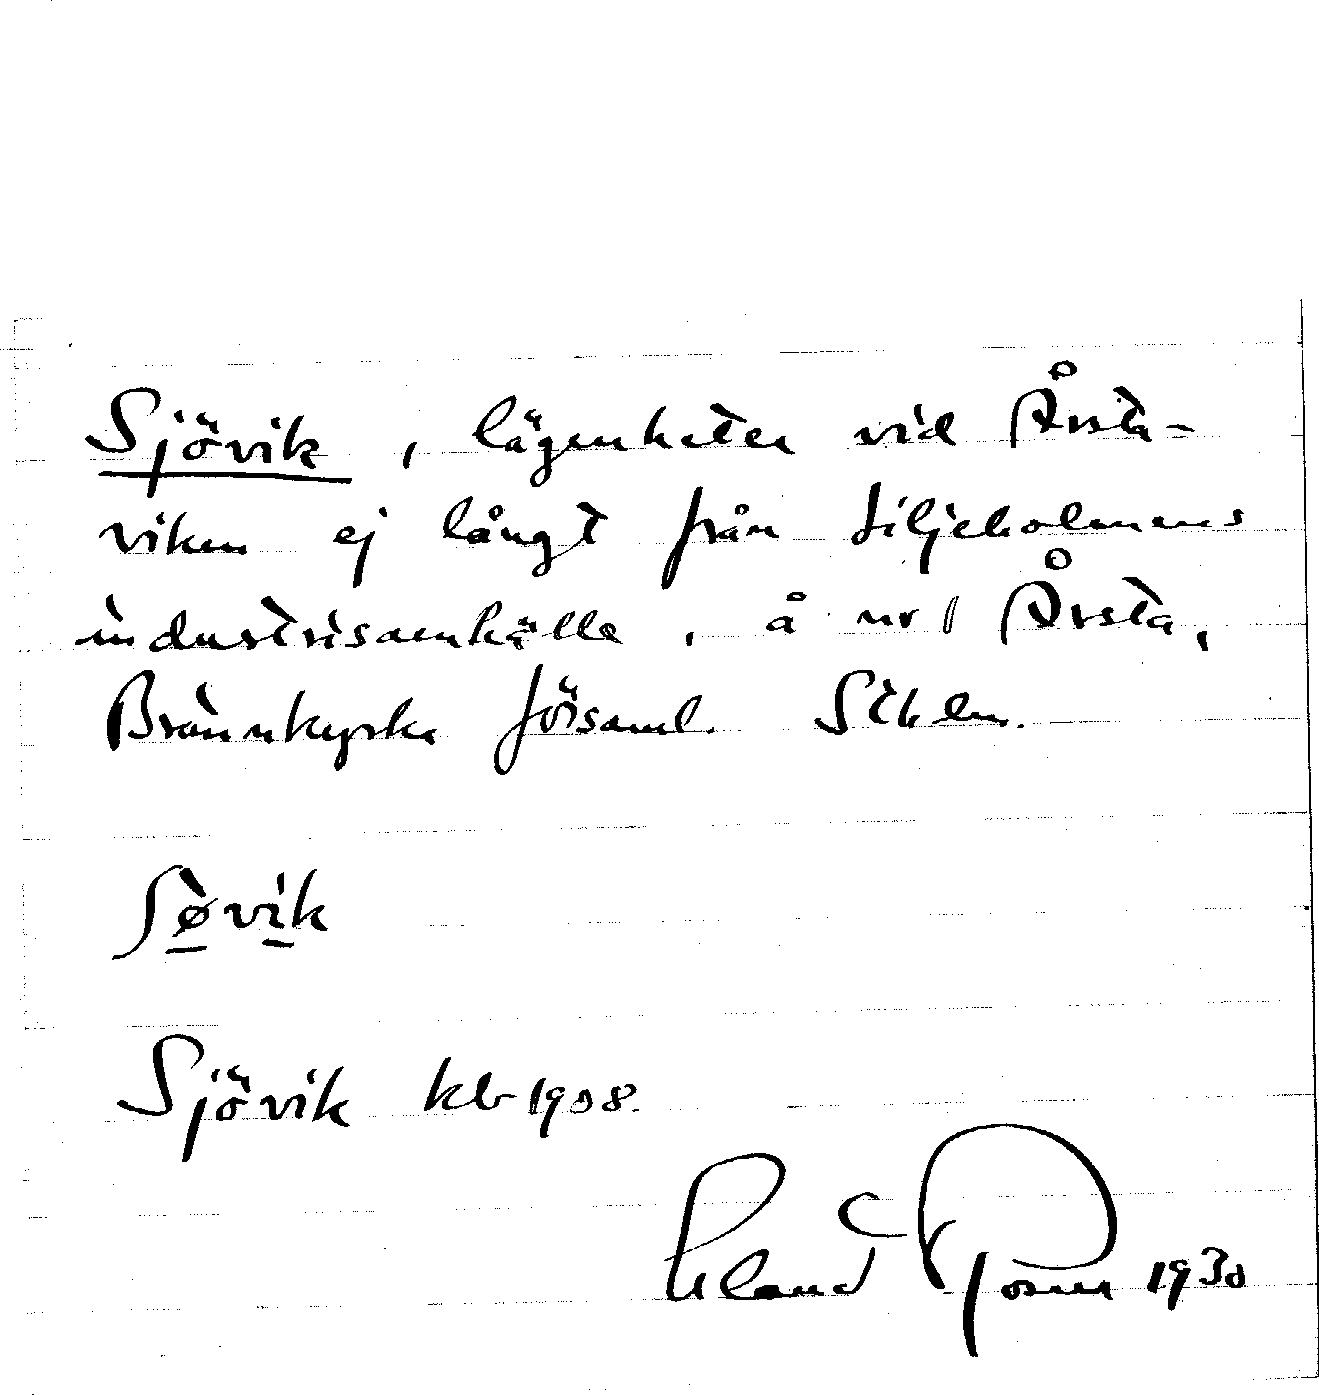 Sjövik, lägenheter vid Årsta-
viken ej långt från Liljeholmens
industrisamhälle, å nr 1 Årsta,
Brännkyrka församl. Sthlm.
Sjövik kb 1908.
1930